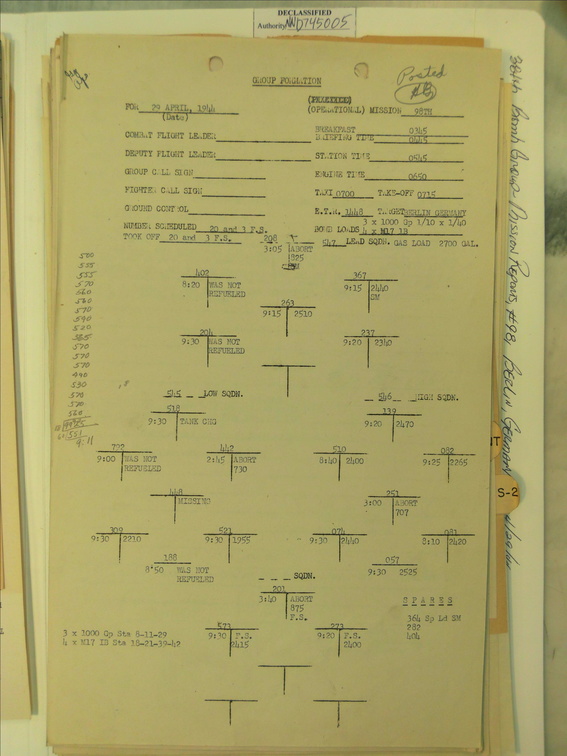 DECLASSIFIED
Authority NND745005
Posted
GROUP FORMATION
FOR 29 APRIL, 1944
(Date)
(OPERATIONAL) MISSION 98TH
COMBAT FLIGHT LEADER
BREAKFAST 0345
BRIEFING TIME 0445
DEPUTY FLIGHT LEADER
STATION TIME 0545
GROUP CALL SIGN
ENGINE TIME 0650
FIGHTER CALL SIGN
TAXI 0700 TAKE-OFF 0715
GROUND CONTROL
E.T.R. 1448 TARGET BERLIN GERMANY
NUMBER SCHEDULED 20 and 3 F.S.
3 x 1000 Gp 1/10 x 1/40
BOMB LOADS 4 x M17 IB
TOOK OFF 20 and 3 F.S.
547 LEAD SQDN. GAS LOAD 2700 GAL.
208
3:05 ABORT
825
402
8:20 WAS NOT
REFUELED
367
9:15 2440
SM
263
9:15 2510
204
9:30 WAS NOT
REFUELED
237
9:20 2340
545 LOW SQDN.
546 HIGH SQDN.
518
9:30 TANK CHG
139
9:20 2470
722
9:00 WAS NOT
REFUELED
442
2:45 ABORT
730
510
8:40 2400
082
9:25 2265
448
MISSING
251
3:00 ABORT
707
309
9:30 2210
521
9:30 1955
074
9:30 2440
081
8:10 2420
188
8:50 WAS NOT
REFUELED
057
9:30 2525
SQDN.
201
3:40 ABORT
875
F.S.
SPARES
364 Sp Ld SM
282
404
573
9:30 F.S.
2415
273
9:20 F.S.
2400
3 x 1000 Gp Sta 8-11-29
4 x M17 IB Sta 18-21-39-42
384th Bomb Group - Mission Reports, #98, Berlin, German
S-2